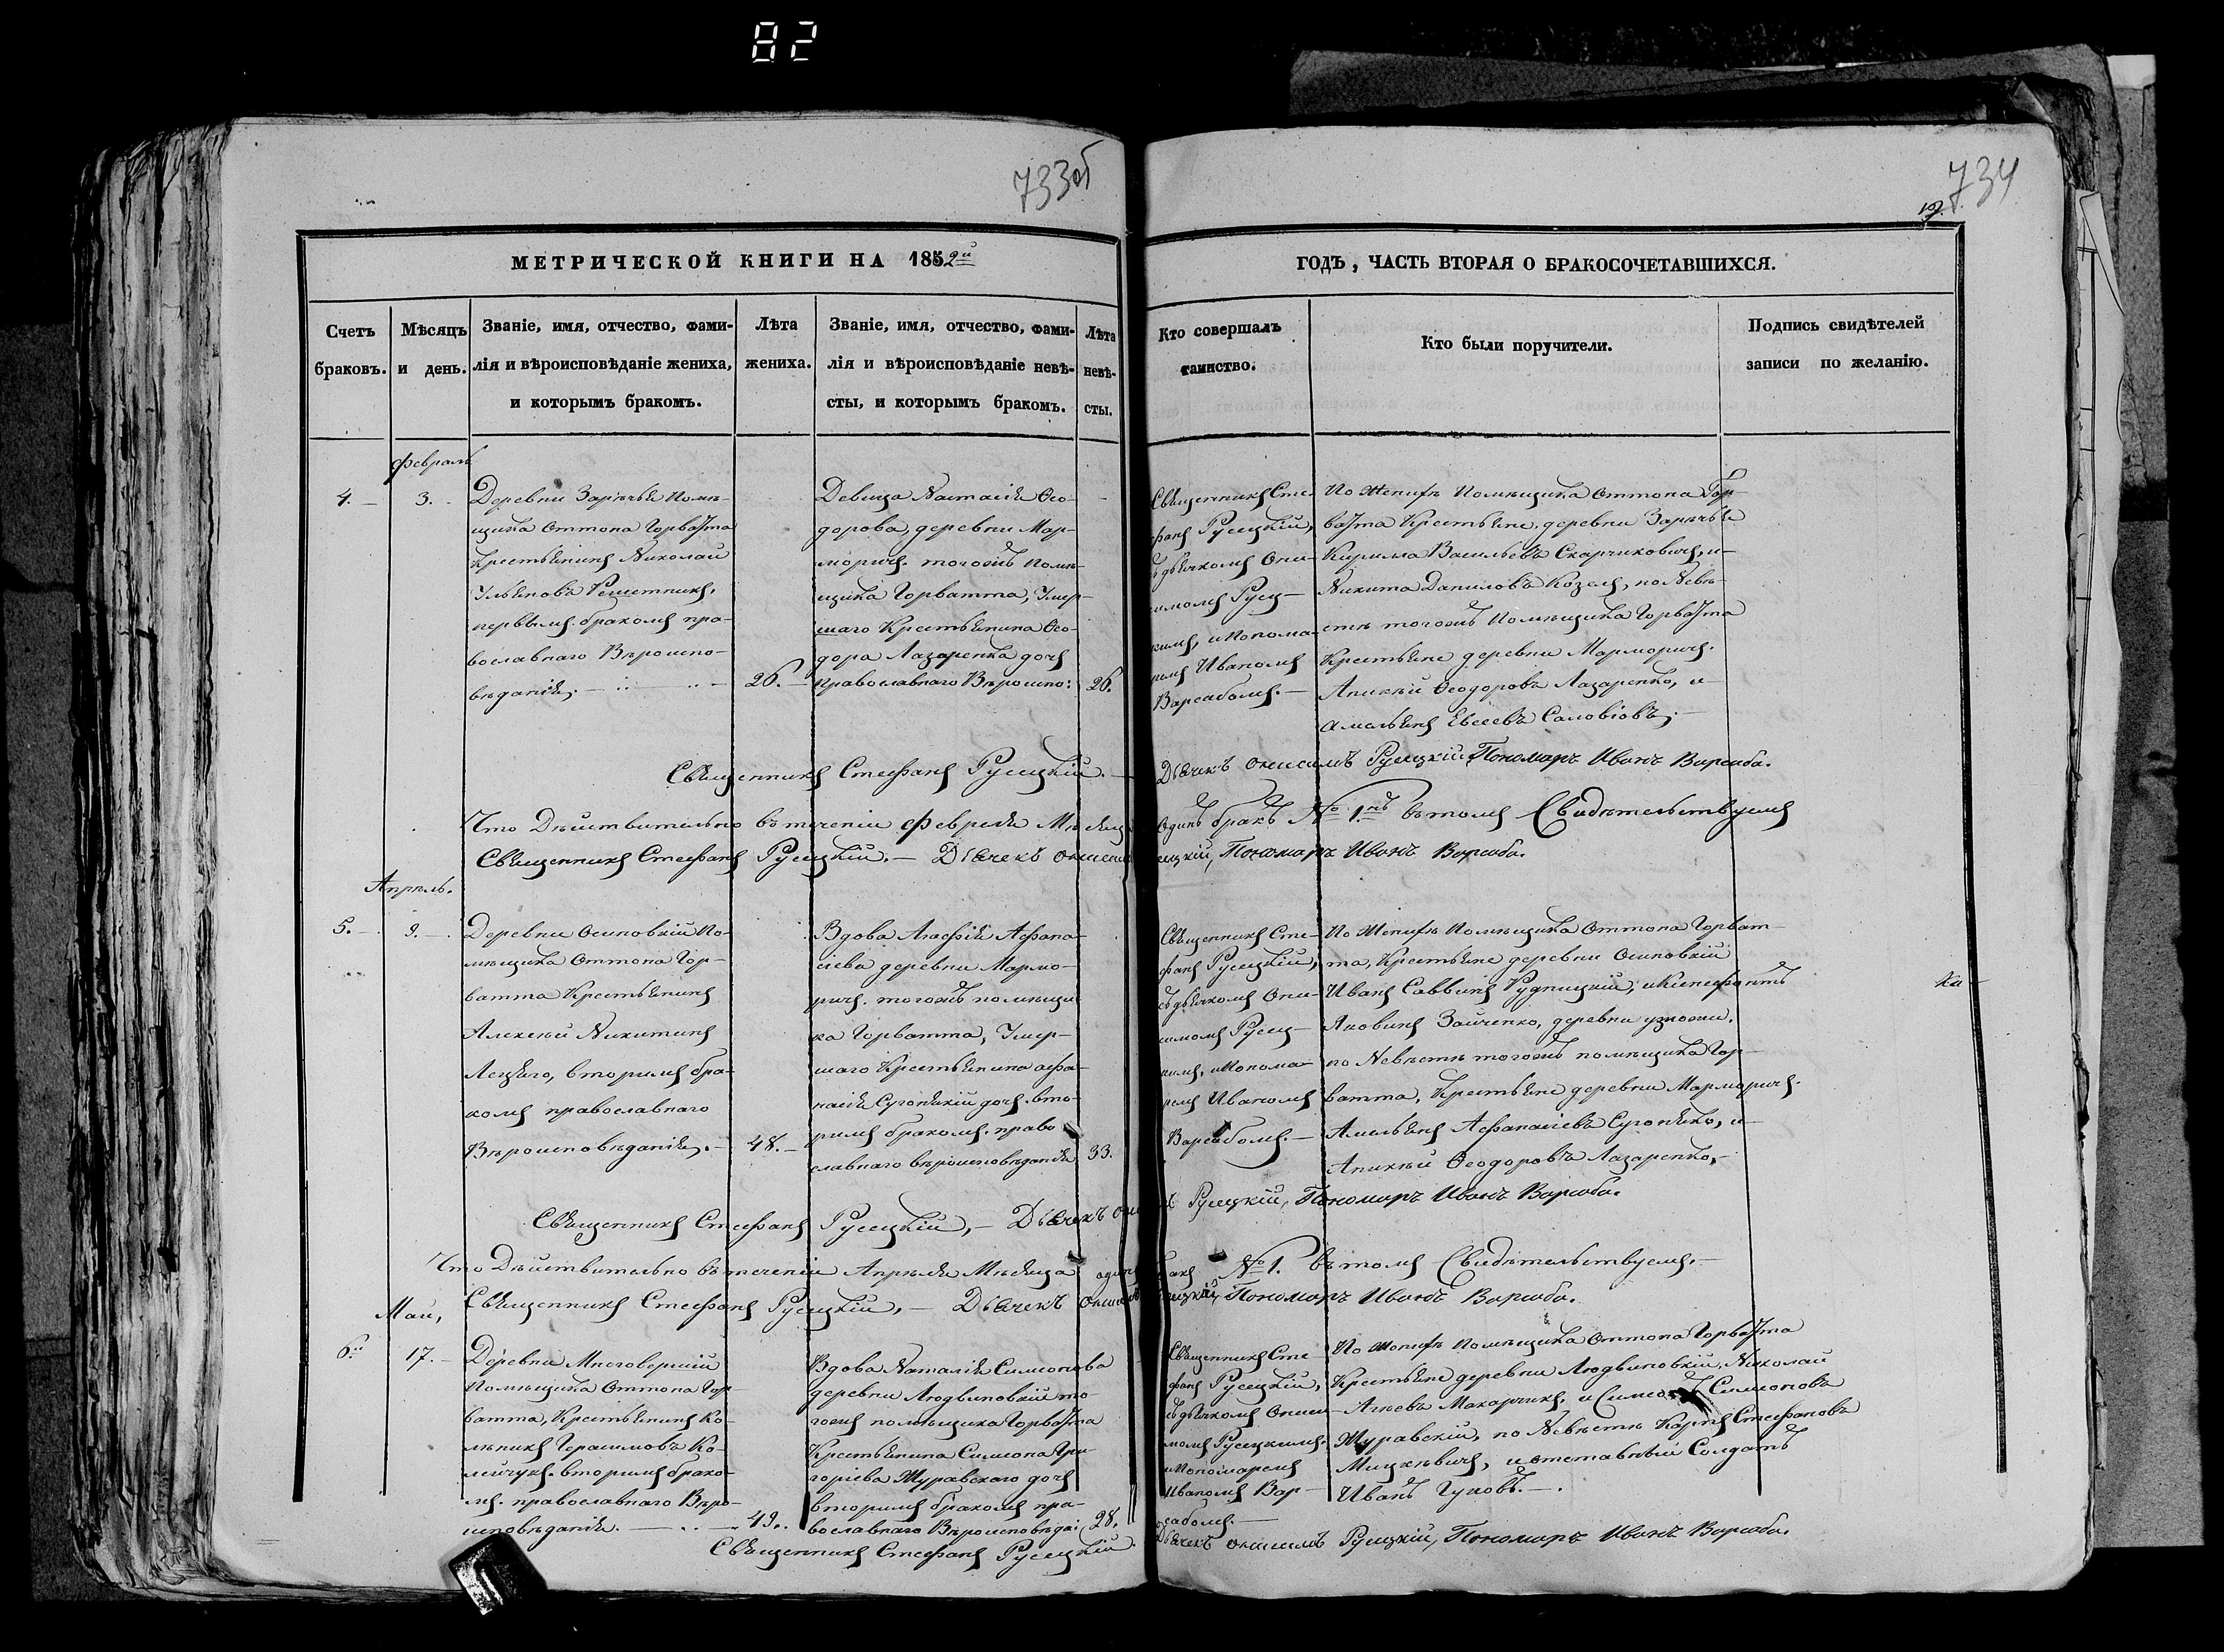 82
733об
734
МЕТРИЧЕСКОЙ КНИГИ НА 1852й
ГОДЪ, ЧАСТЬ ВТОРАЯ О БРАКОСОЧЕТАВШИХСЯ.
Счетъ
браковъ.
Мѣсяцъ
и день.
Званіе, имя, отчество, фами-
лія и вѣроисповѣданіе жениха,
и которымъ бракомъ.
Лѣта
жениха.
Званіе, имя, отчество, фами-
лія и вѣроисповѣданіе невѣ-
сты, и которымъ бракомъ.
Лѣта
невѣ-
сты.
Кто совершалъ
таинство.
Кто были поручители.
Подпись свидѣтелей
записи по желанію.
Февраль
4.
3.
Деревни Зарѣчья Помѣ-
щика Оттона Горватта
Крестьянинъ Николай
Ульяновъ Решетникъ,
первымъ бракомъ пра-
вославнаго Вѣроиспо-
вѣданія.
26.
Девица Настасія Ѳео-
дорова, деревни Мар-
моричъ. тогожъ помѣ-
щика Горватта, Умер-
шаго Крестьянина Ѳео-
дора Лазаренка дочь
православнаго Вѣроиспо:
26.
Священникъ Сте-
фанъ Русецкій,
съ дьячкомъ Они-
симомъ Русец-
кимъ, и Понома-
ремъ Иваномъ
Варсабомъ.
По Женихѣ Помѣщика Оттона Гор-
ватта Крестьяне деревни Зарѣчья
Кирилла Васильевъ Скарчиковичъ, и
Никита Даниловъ Козелъ, по Невѣ-
стѣ тогожъ Помѣщика Горватта
Крестьяне деревни Марморичъ.
Аникѣй Ѳеодоровъ Лазаренко, и
Амельянъ Евсеевъ Саловіовъ.
Священникъ Стефанъ Русецкій.
Дьячекъ Онисимъ Русецкій, Пономарь Иванъ Варсаба.
Что Дѣйствительно въ теченіи Февраля Мѣсяца одинъ бракъ № 1й въ томъ Свидѣтельствуемъ
Священникъ Стефанъ Русецкій. Дьячекъ Онисимъ Русецкій, Пономарь Иванъ Варсаба.
Апрѣль.
5.
9.
Деревни Осиповкій По-
мѣщика Оттона Гор-
ватта Крестьянинъ
Алексѣй Никитинъ
вторымъ бра-
комъ православнаго
Вѣроисповѣданія.
48.
Вдова Афана-
сіева деревни Мармо-
ричъ. тогожъ помѣщи-
ка Горватта, Умер-
шаго Крестьянина Афа-
насія дочь. вто-
рымъ бракомъ. право-
славнаго вѣроисповѣданія
33.
Священникъ Сте-
фанъ Русецкій,
съ дьячкомъ Они-
симомъ Русец-
кимъ, и Понома-
ремъ Иваномъ
Варсабомъ.
По Женихѣ Помѣщика Оттона Горват-
та, Крестьяне деревни Осиповкій
Иванъ Саввинъ Рудницкій, и Ксенофонтъ
Яковинъ Зайченко, деревни
по Невѣстѣ тогожъ помѣщика Гор-
ватта, Крестьяне деревни Марморичъ.
Амельянъ Афанасіевъ и
Аникѣй Ѳеодоровъ Лазаренко,
Священникъ Стефанъ Русецкій, Дьячекъ Онисимъ Русецкій, Пономарь Иванъ Варсаба.
Что Дѣйствительно въ теченіи Апрѣля Мѣсяца одинъ бракъ № 1. въ томъ Свидѣтельствуемъ.
Священникъ Стефанъ Русецкій, Дьячекъ Онисимъ Русецкій, Пономарь Иванъ Варсаба.
Май,
6й
17.
Деревни Многовершій
Помѣщика Оттона Гор-
ватта, Крестьянинъ Ко-
Герасимовъ Ко-
вторымъ брако-
мъ. православнаго Вѣро-
исповѣданія.
49.
Вдова Наталія Симеонова
деревни Людвиновкій то-
гожъ помѣщика Горватта
Крестьянина Симеона Гри-
горіева Журавскаго дочь
вторымъ бракомъ пра-
вославнаго Вѣроисповѣдан
28.
Священникъ Сте-
фанъ Русецкій,
съ дьячкомъ Ониси-
момъ Русецкимъ.
и Пономаремъ
Иваномъ Вар-
сабомъ.
По Женихѣ Помѣщика Оттона Горватта
Крестьяне деревни Людвиновкій, Николай
Макарчикъ, и Симеонъ Симеоновъ
Журавскій, по Невѣстѣ Карпъ Стефановъ
Мицкѣвичъ, и отставный Солдатъ
Иванъ Гуковъ.
Священникъ Стефанъ Русецкій.
Дьячекъ Онисимъ Русецкій, Пономарь Иванъ Варсаба.